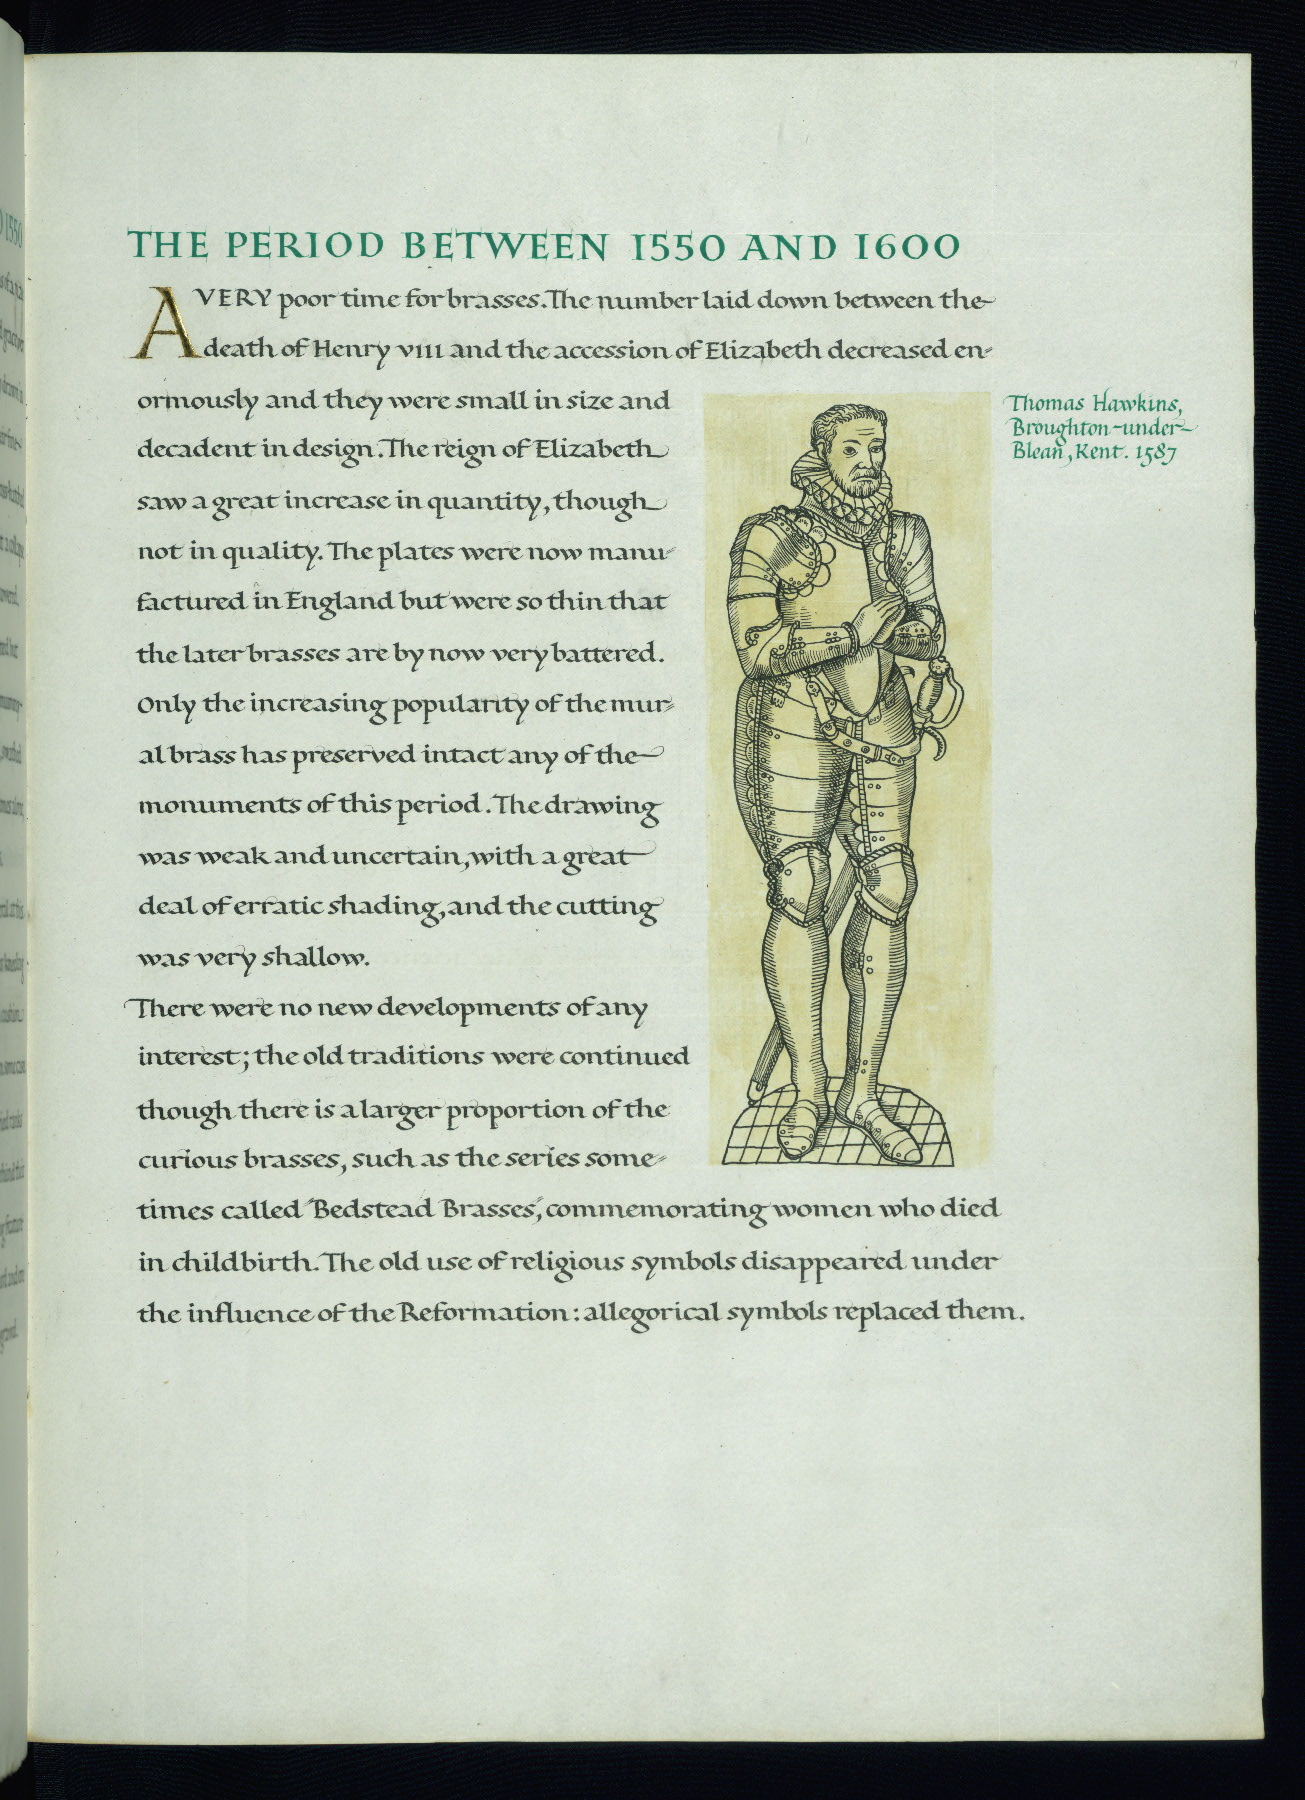 THE PERIOD BETWEEN 1550 AND 1600
A VERY poor time for brasses. The number laid down between the
death of Henry VIII and the accession of Elizabeth decreased en-
ormously and they were small in size and
decadent in design. The reign of Elizabeth
saw a great increase in quantity, though
not in quality. The plates were now manu-
factured in England but were so thin that
the later brasses are by now very battered.
Only the increasing popularity of the mur-
al brass has preserved intact any of the
monuments of this period. The drawing
was weak and uncertain, with a great
deal of erratic shading, and the cutting
was very shallow.
There were no new developments of any
interest; the old traditions were continued
though there is a larger proportion of the
curious brasses, such as the series some-
times called "Bedstead Brasses", commemorating women who died
in childbirth. The old use of religious symbols disappeared under
the influence of the Reformation: allegorical symbols replaced them.
Thomas Hawkins,
Broughton-under-
Blean, Kent. 1587